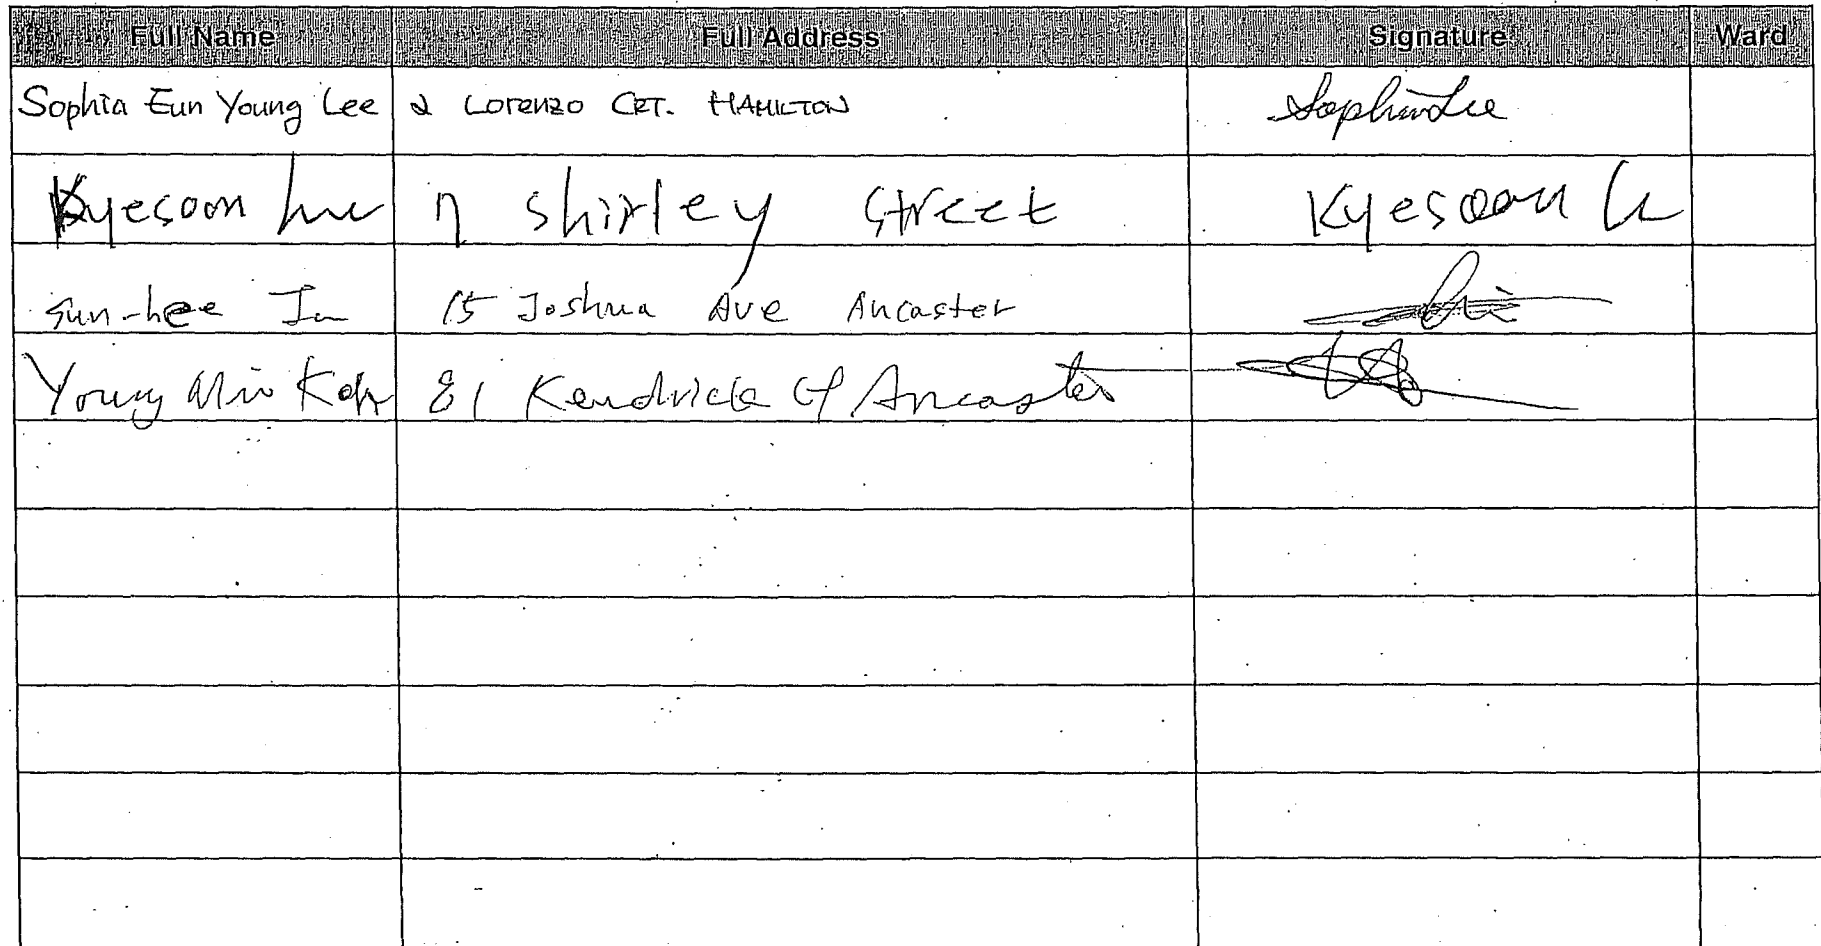 Full Name Full Address Signature Ward
Sophia Eun Young Lee 2 Lorenzo CRT. HAMILTON Sophia Lee
Kyesoon 7 Shirley Street Kyesoon
Sun-hee 15 Joshua Ave Ancaster
Young Min Koh 81 Kendrick Ct Ancaster